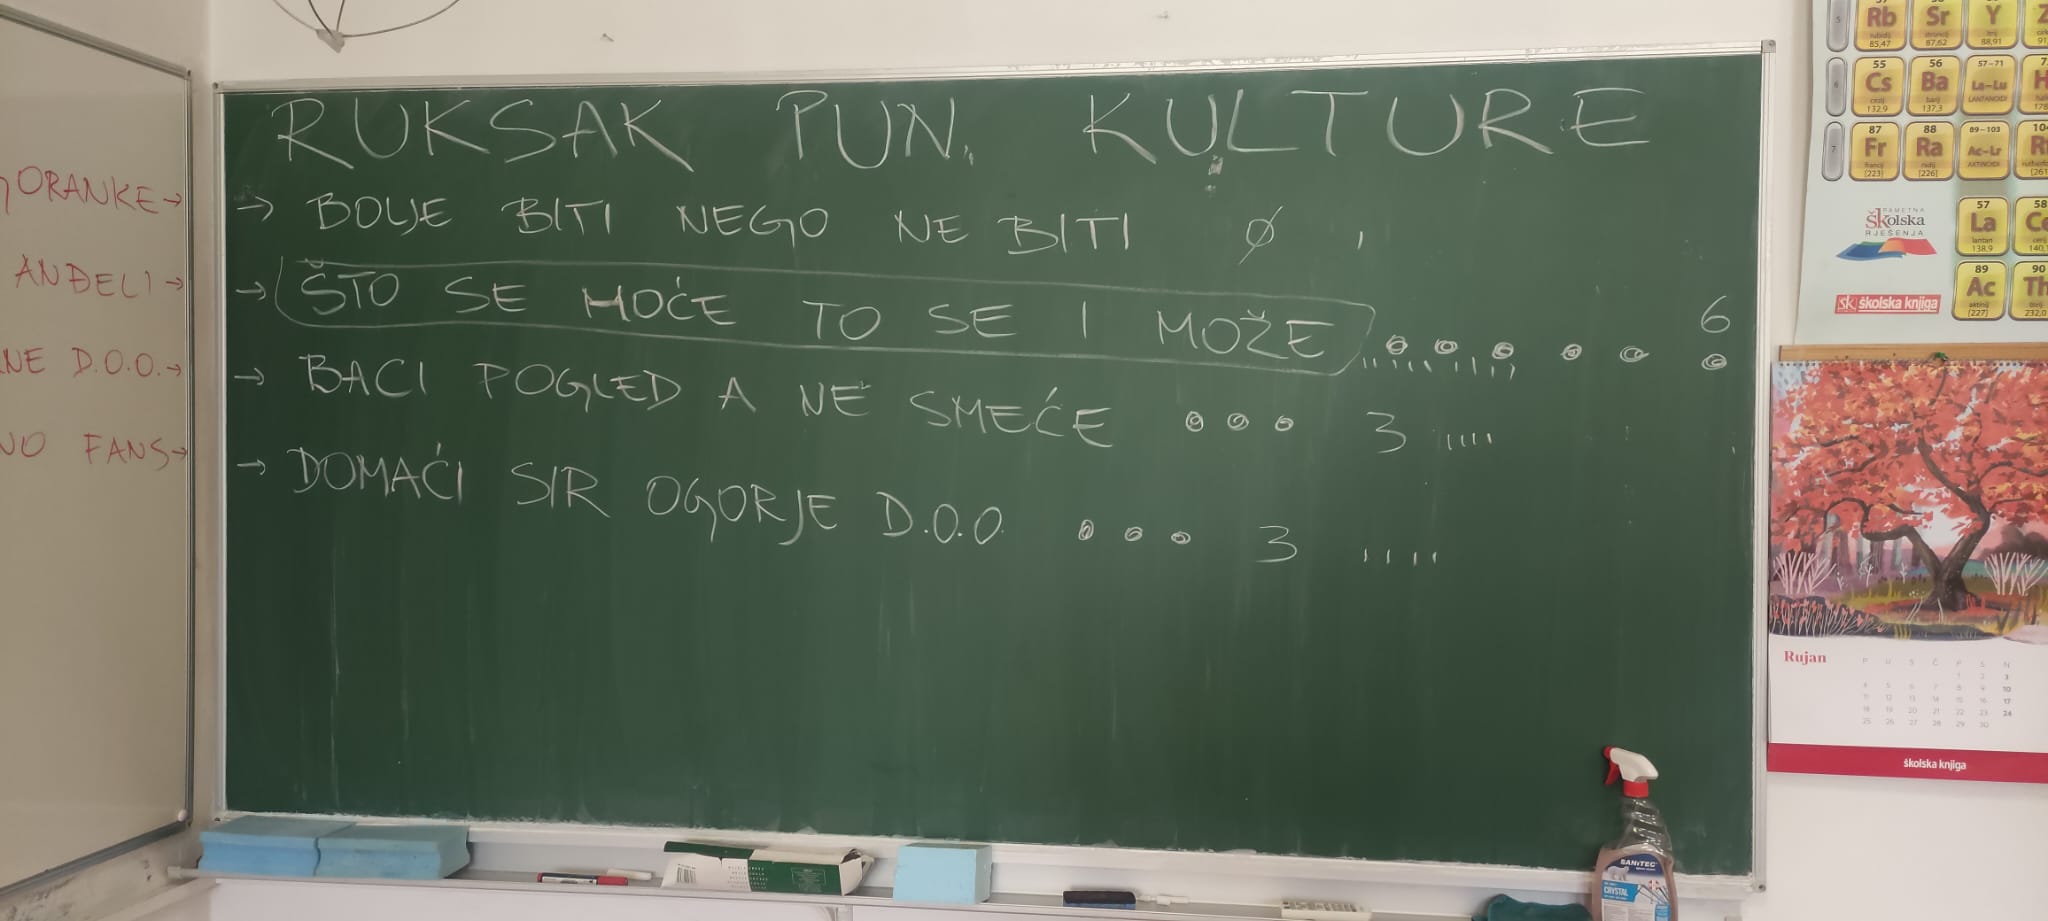 RUKSAK PUN KULTURE
→ BOLJE BITI NEGO NE BITI Ø
→ ŠTO SE MOĆE TO SE I MOŽE 6
→ BACI POGLED A NE SMEĆE 3
→ DOMAĆI SIR OGORJE D.O.O. 3
GORANKE →
ANĐELI →
D.O.O. →
FANS →
5
Rb
rubidij
85,47
Sr
stroncij
87,62
Y
itrij
88,91
6
55
Cs
cezij
132,9
56
Ba
barij
137,3
57-71
La-Lu
LANTANOIDI
7
87
Fr
francij
[223]
88
Ra
radij
[226]
89-103
Ac-Lr
AKTINOIDI
57
La
lantan
138,9
58
89
Ac
aktinij
[227]
90
Th
torij
232,0
PAMETNA
školska
RJEŠENJA
sk školska knjiga
Rujan
P U S Č P S N
1 2 3
4 5 6 7 8 9 10
11 12 13 14 15 16 17
18 19 20 21 22 23 24
25 26 27 28 29 30
školska knjiga
SANITEC
CRYSTAL